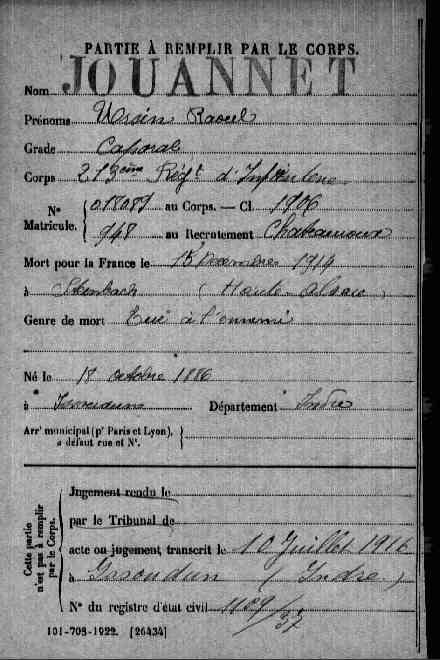 PARTIE À REMPLIR PAR LE CORPS.
Nom JOUANNET
Prénoms Ursin Raoul
Grade Caporal
Corps 213ème Régt d'Infanterie
N° Matricule. { 018087 au Corps. — Cl. 1906
948 au Recrutement Chateauroux
Mort pour la France le 15 Décembre 1914
à Steinbach (Haute-Alsace)
Genre de mort Tué à l'ennemi
Né le 18 octobre 1886
à Issoudun Département Indre
Arrt municipal (pr Paris et Lyon), à défaut rue et N°. }
Cette partie n'est pas à remplir par le Corps.
Jugement rendu le
par le Tribunal de
acte ou jugement transcrit le 10 Juillet 1916
à Issoudun (Indre)
N° du registre d'état civil 1109/37
101-708-1922. [26434]